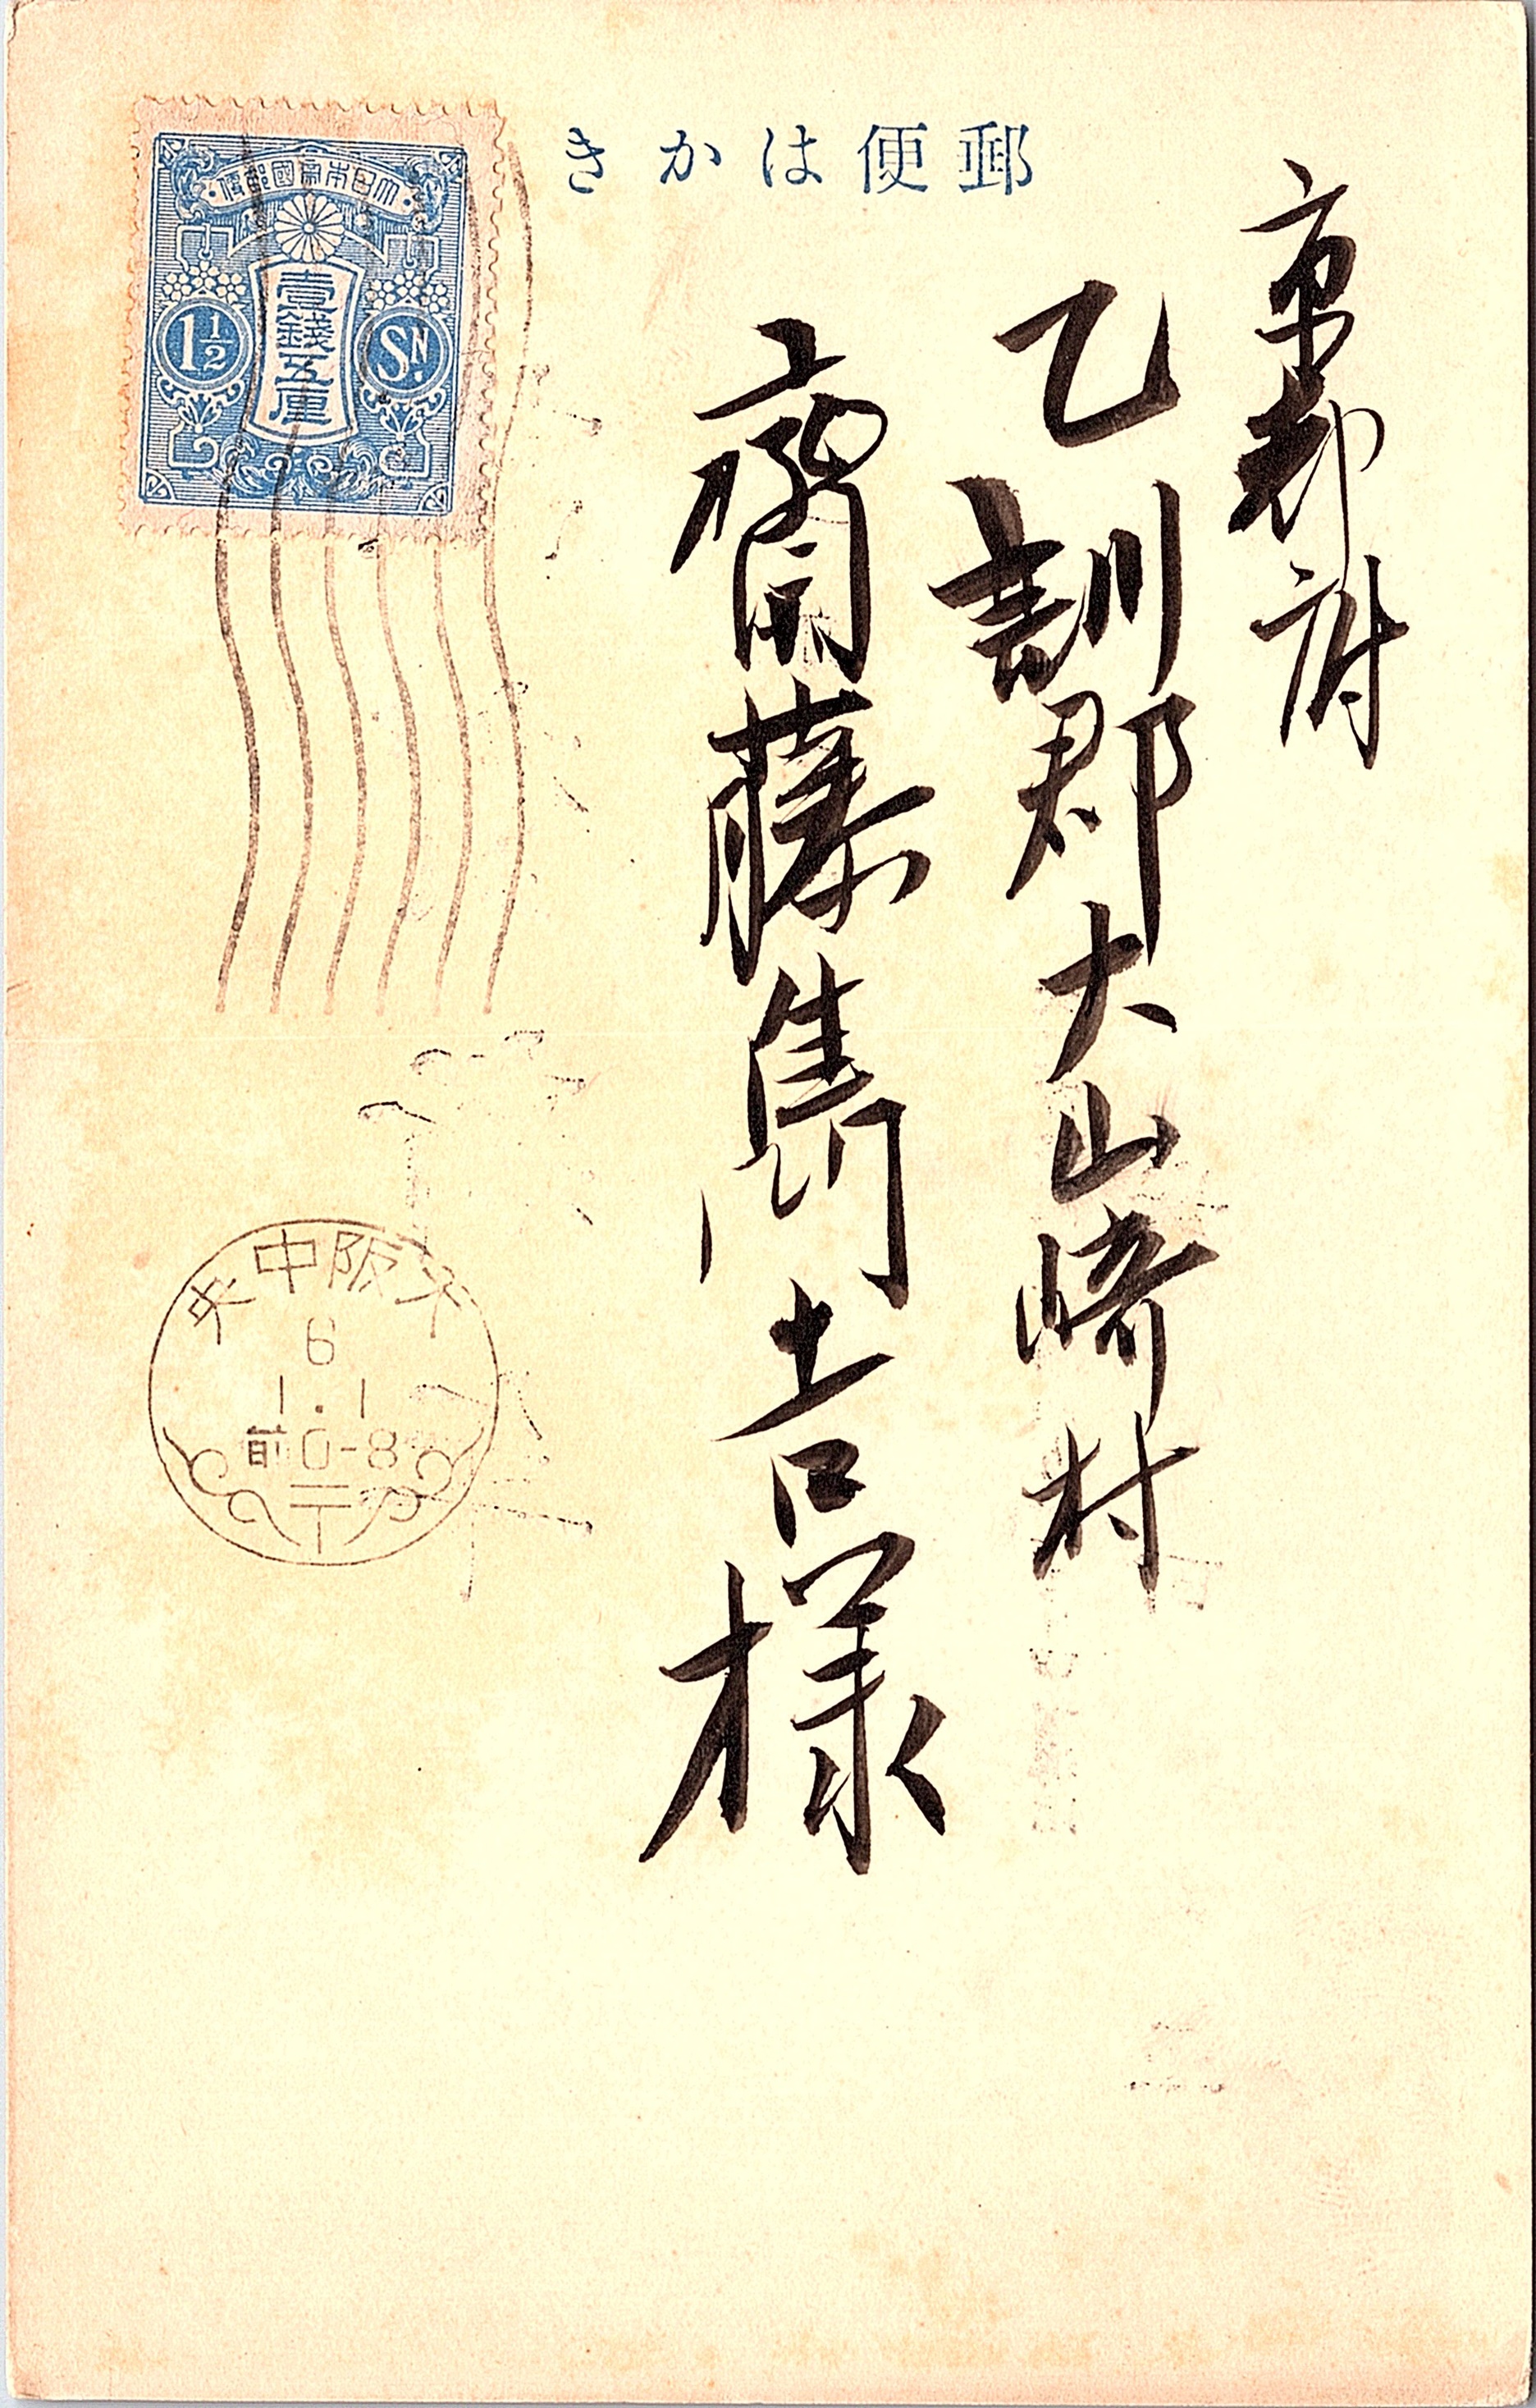 郵便はかき
京都府
乙訓郡大山崎村
齋藤雋吉様
大日本帝國郵便
壹錢五厘
1½ Sɴ.
大阪中央
6
1.1
前0-8